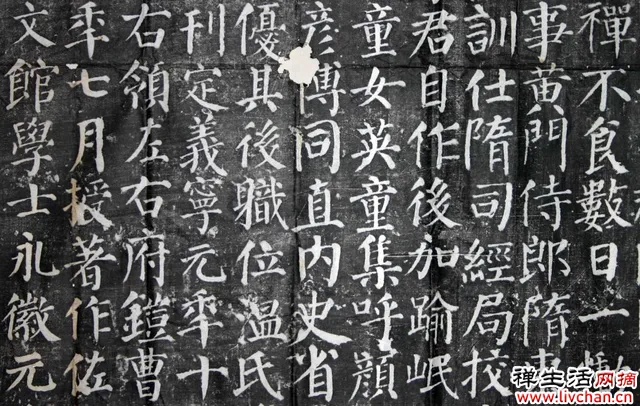 禪不食數日一
事黄門侍郎隋東
訓仕隋司經局挍
君自作後加踰岷
童女英童集呼顔
彦博同直内史省
優其後職位温氏
刊定義寧元秊十
右領左右府鎧曹
秊七月授著作佐
文館學士永徽元
禅生活网摘
www.livchan.cn